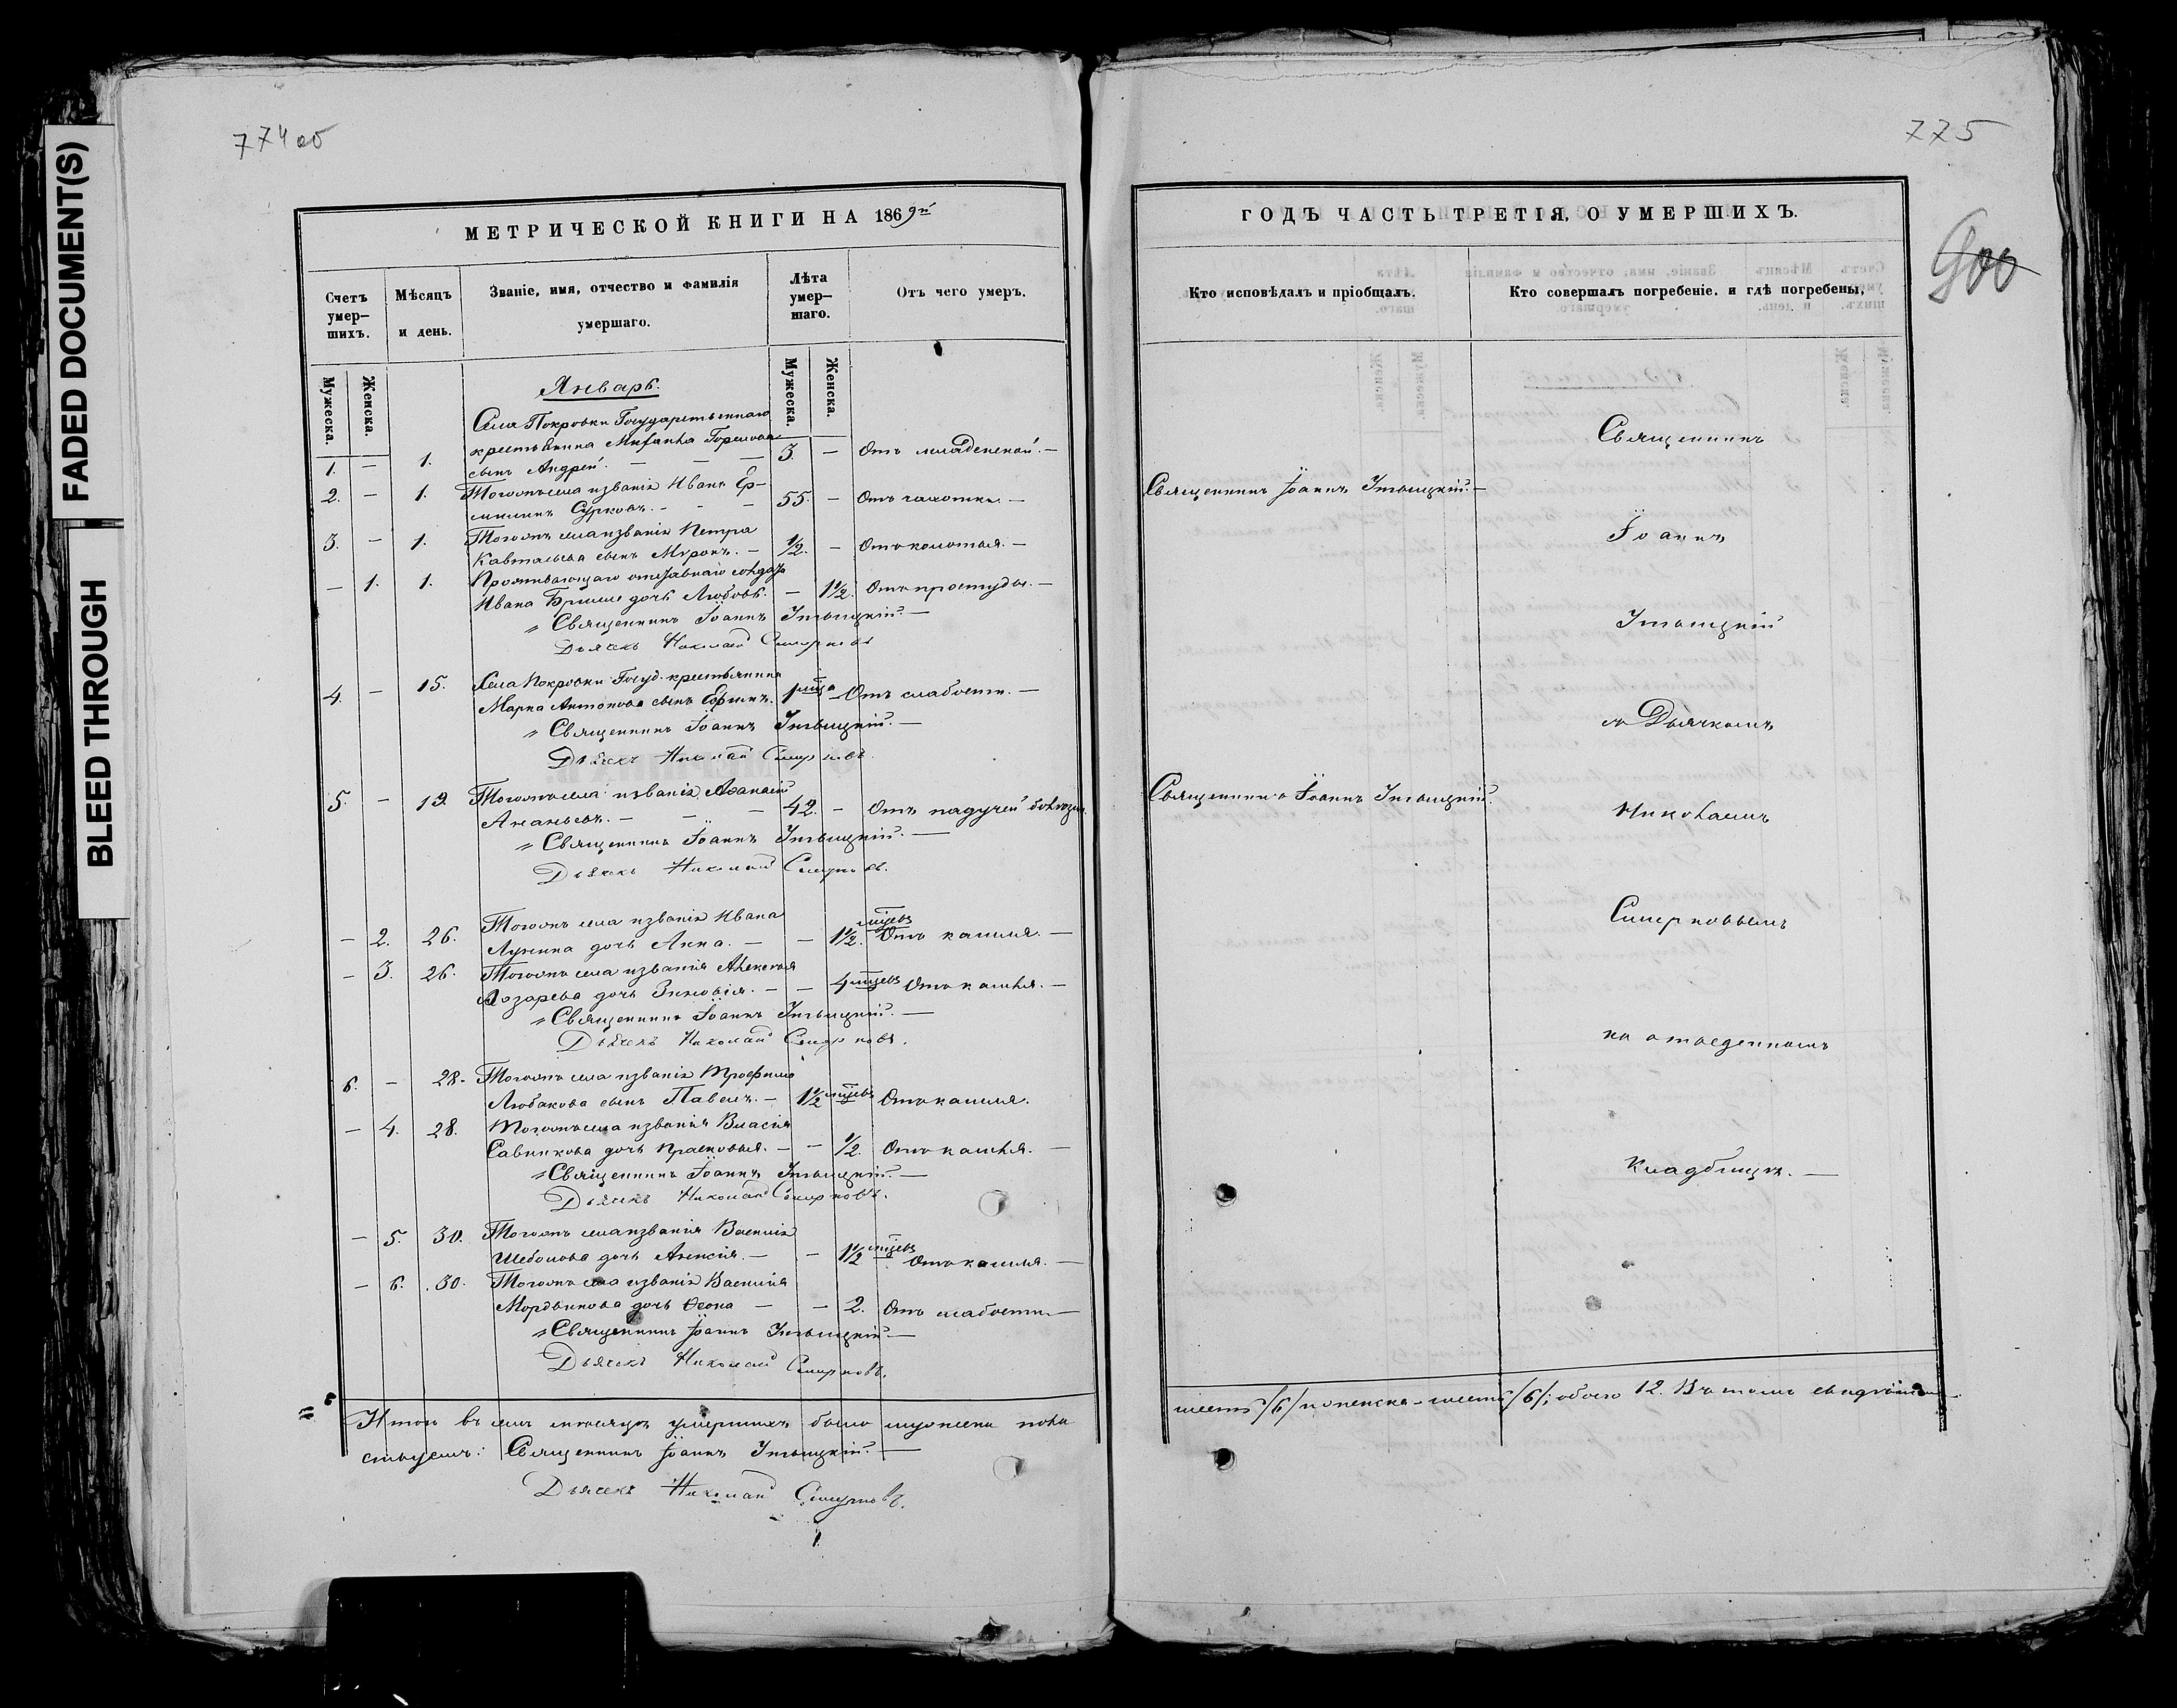 FADED DOCUMENT(S)
BLEED THROUGH
774 об
775
900
МЕТРИЧЕСКОЙ КНИГИ НА 1869й
Счетъ умер-шихъ.
Мѣсяцъ и день.
Званіе, имя, отчество и фамилія умершаго.
Лѣта умер-шаго.
Отъ чего умеръ.
Мужеска.
Женска.
Мужеска.
Женска.
Январь.
Села Покровки Государственнаго
крестьянина
1. — 1. сынъ Андрей. — — — 3. — Отъ младенской. —
2. — 1. Тогожъ села и званія Иванъ Ер-
Сурковъ. — — — 55. — Отъ чахотки. —
3. — 1. Тогожъ села и званія Петра
сынъ Миронъ. — 1/2. — Отъ колотья. —
— 1. 1. Проживающаго отставнаго солдата
Ивана дочь Любовь. — 1 1/2. Отъ простуды. —
„ Священникъ Іоаннъ —
Дьячекъ Николай Смирновъ
4. — 15. Села Покровки Госуд. крестьянина
Марка Антонова сынъ Ефимъ. 1 мца — Отъ слабости. —
„ Священникъ Іоаннъ —
Дьячекъ Николай Смирновъ.
5. — 19. Тогожъ села и званія Аѳанасій
Ананьевъ. — — — 42. — Отъ падучей болѣзни.
„ Священникъ Іоаннъ —
Дьячекъ Николай Смирновъ.
— 2. 26. Тогожъ села и званія Ивана
Лунина дочь Анна. — — 1 1/2. мцевъ Отъ кашля. —
— 3. 26. Тогожъ села и званія Алексѣя
Лазарева дочь Зиновія. — — 4 мцевъ Отъ кашля. —
„ Священникъ Іоаннъ —
Дьячекъ Николай Смирновъ.
6. — 28. Тогожъ села и званія Трофима
Любакова сынъ Павелъ. — 1 1/2 мцевъ Отъ кашля.
— 4. 28. Тогожъ села и званія Власія
Савинкова дочь Прасковья. — — 1/2. Отъ кашля. —
„ Священникъ Іоаннъ —
Дьячекъ Николай Смирновъ.
— 5. 30. Тогожъ села и званія Василія
дочь Анисія. — — 1 1/2 мцевъ Отъ кашля. —
— 6. 30. Тогожъ села и званія Василія
Мордвинова дочь — — 2. Отъ слабости —
„ Священникъ Іоаннъ —
Дьячекъ Николай Смирновъ.
Итого въ семъ мѣсяцѣ умершихъ было мужеска пола
ствуемъ: Священникъ Іоаннъ —
Дьячекъ Николай Смирновъ.
ГОДЪ ЧАСТЬ ТРЕТІЯ, О УМЕРШИХЪ.
Кто исповѣдалъ и пріобщалъ.
Кто совершалъ погребеніе. и гдѣ погребены,
Священникъ
Священникъ Іоаннъ —
Іоаннъ
съ Дьячкомъ
Священникъ Іоаннъ
Николаемъ
Смирновымъ
на отведенномъ
кладбищѣ. —
шесть /6/ и женска — шесть /6/; обоего 12. Въ томъ свидѣтель-